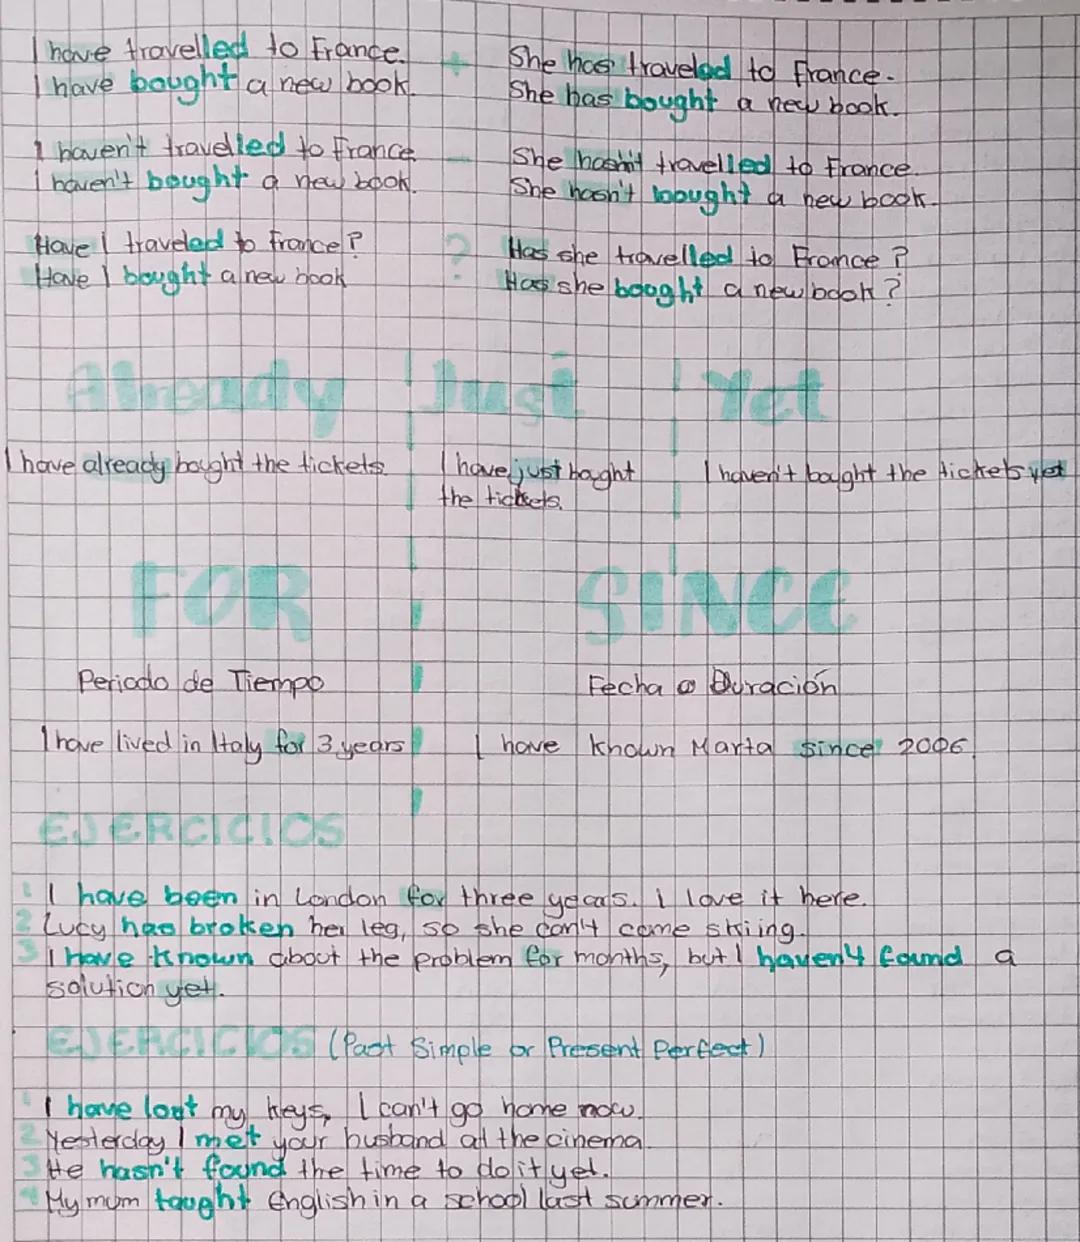 I have travelled to France. + She has traveled to France.
I have bought a new book. She has bought a new book.
I haven't travelled to France. - She hasn't travelled to France.
I haven't bought a new book. She hasn't bought a new book.
Have I traveled to France? ? Has she travelled to France?
Have I bought a new book Has she bought a new book?
Already Just Yet
I have already bought the tickets. I have just bought I haven't bought the tickets yet
the tickets.
FOR SINCE
Periodo de Tiempo Fecha o Duración
I have lived in Italy for 3 years I have known Marta since 2006.
EJERCICIOS
1 I have been in London for three years. I love it here.
2 Lucy has broken her leg, so she can't come skiing.
3 I have known about the problem for months, but I haven't found a
solution yet.
EJERCICIOS (Past Simple or Present Perfect)
1 I have lost my keys, I can't go home now.
2 Yesterday I met your husband at the cinema.
3 He hasn't found the time to do it yet.
4 My mum taught English in a school last summer.